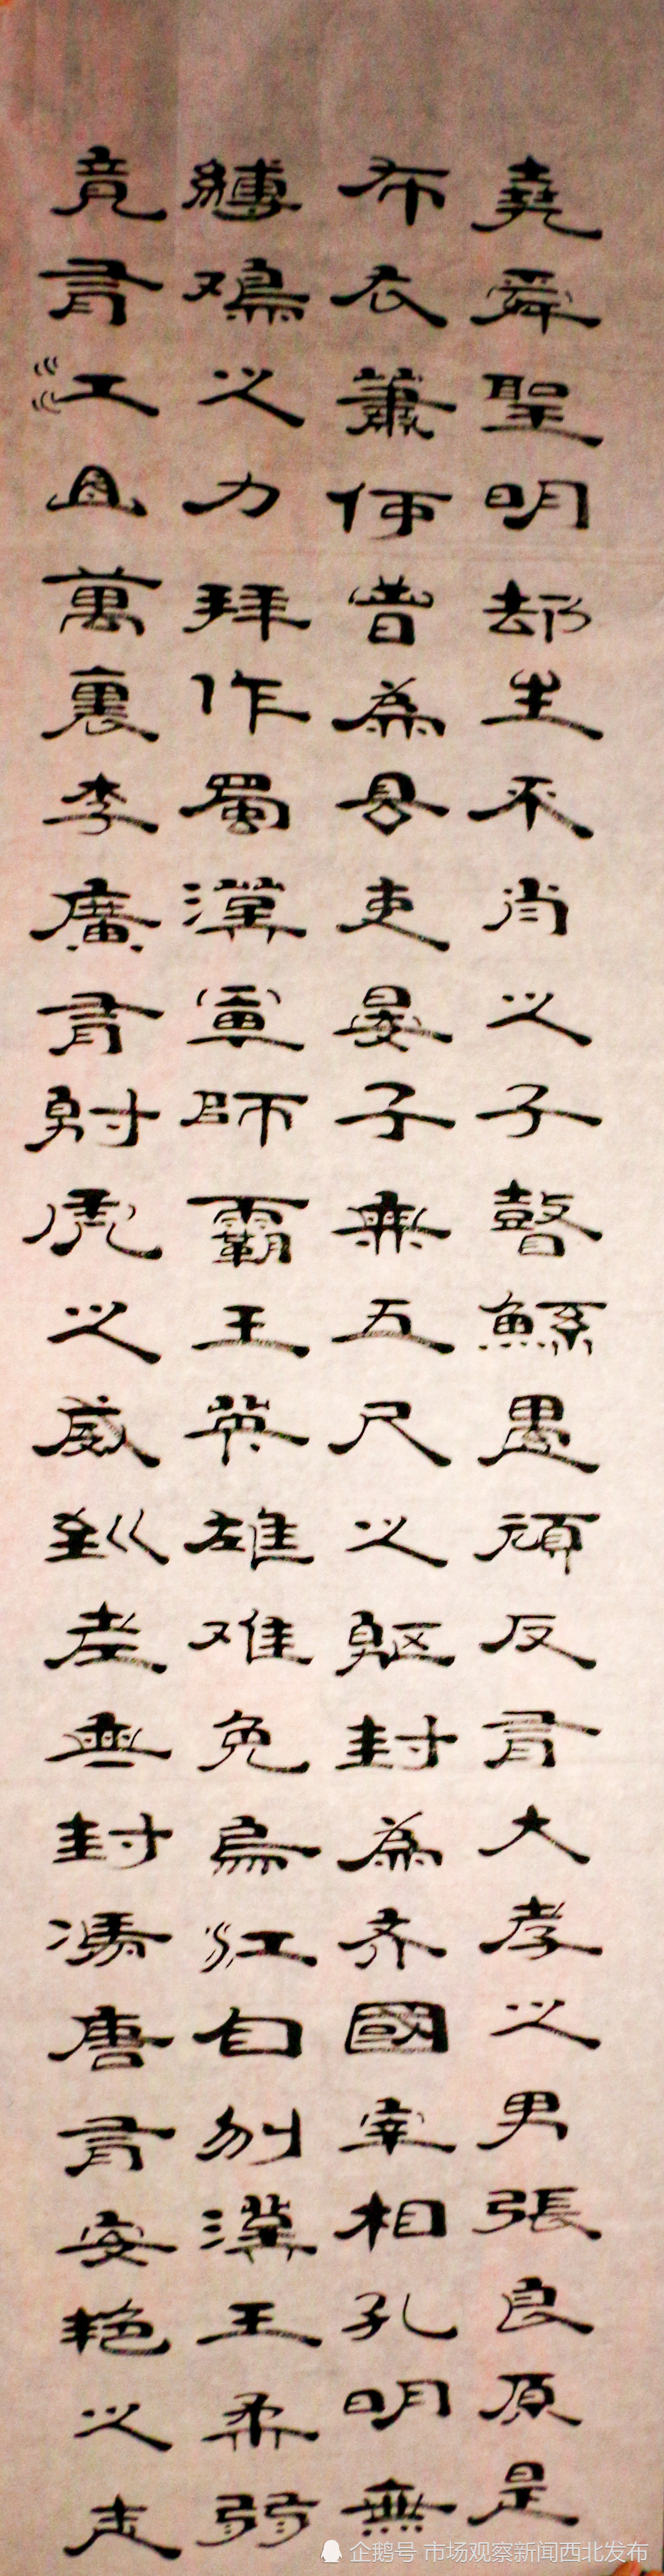 堯舜聖明却生不肖之子瞽鯀愚頑反有大孝之男張良原是
布衣蕭何昔為县吏晏子無五尺之躯封為齐國宰相孔明無
縛鸡之力拜作蜀漢軍師霸王英雄难免烏江自刎漢王柔弱
竟有江山萬裏李廣有射虎之威到老無封馮唐有安之
企鹅号 市场观察新闻西北发布